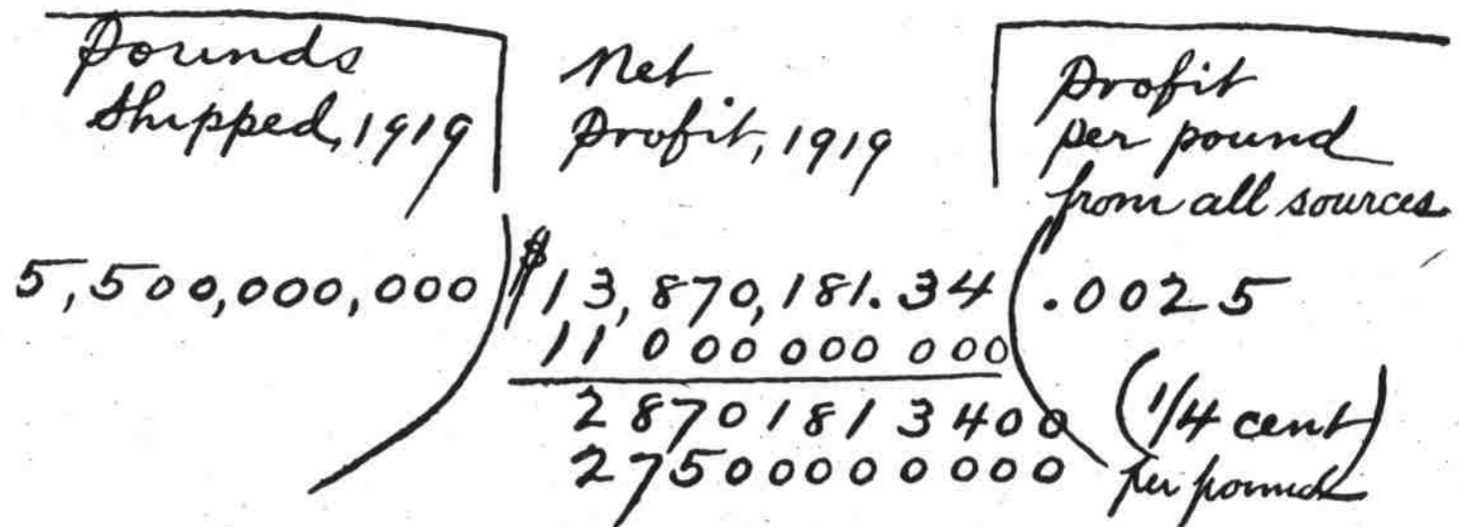 Pounds
Shipped, 1919
Net
Profit, 1919
Profit
per pound
from all sources
5,500,000,000
$13,870,181.34
.0025
11 000 000 000
2 870 181 3400
2750000 0000
(1/4 cent)
per pound